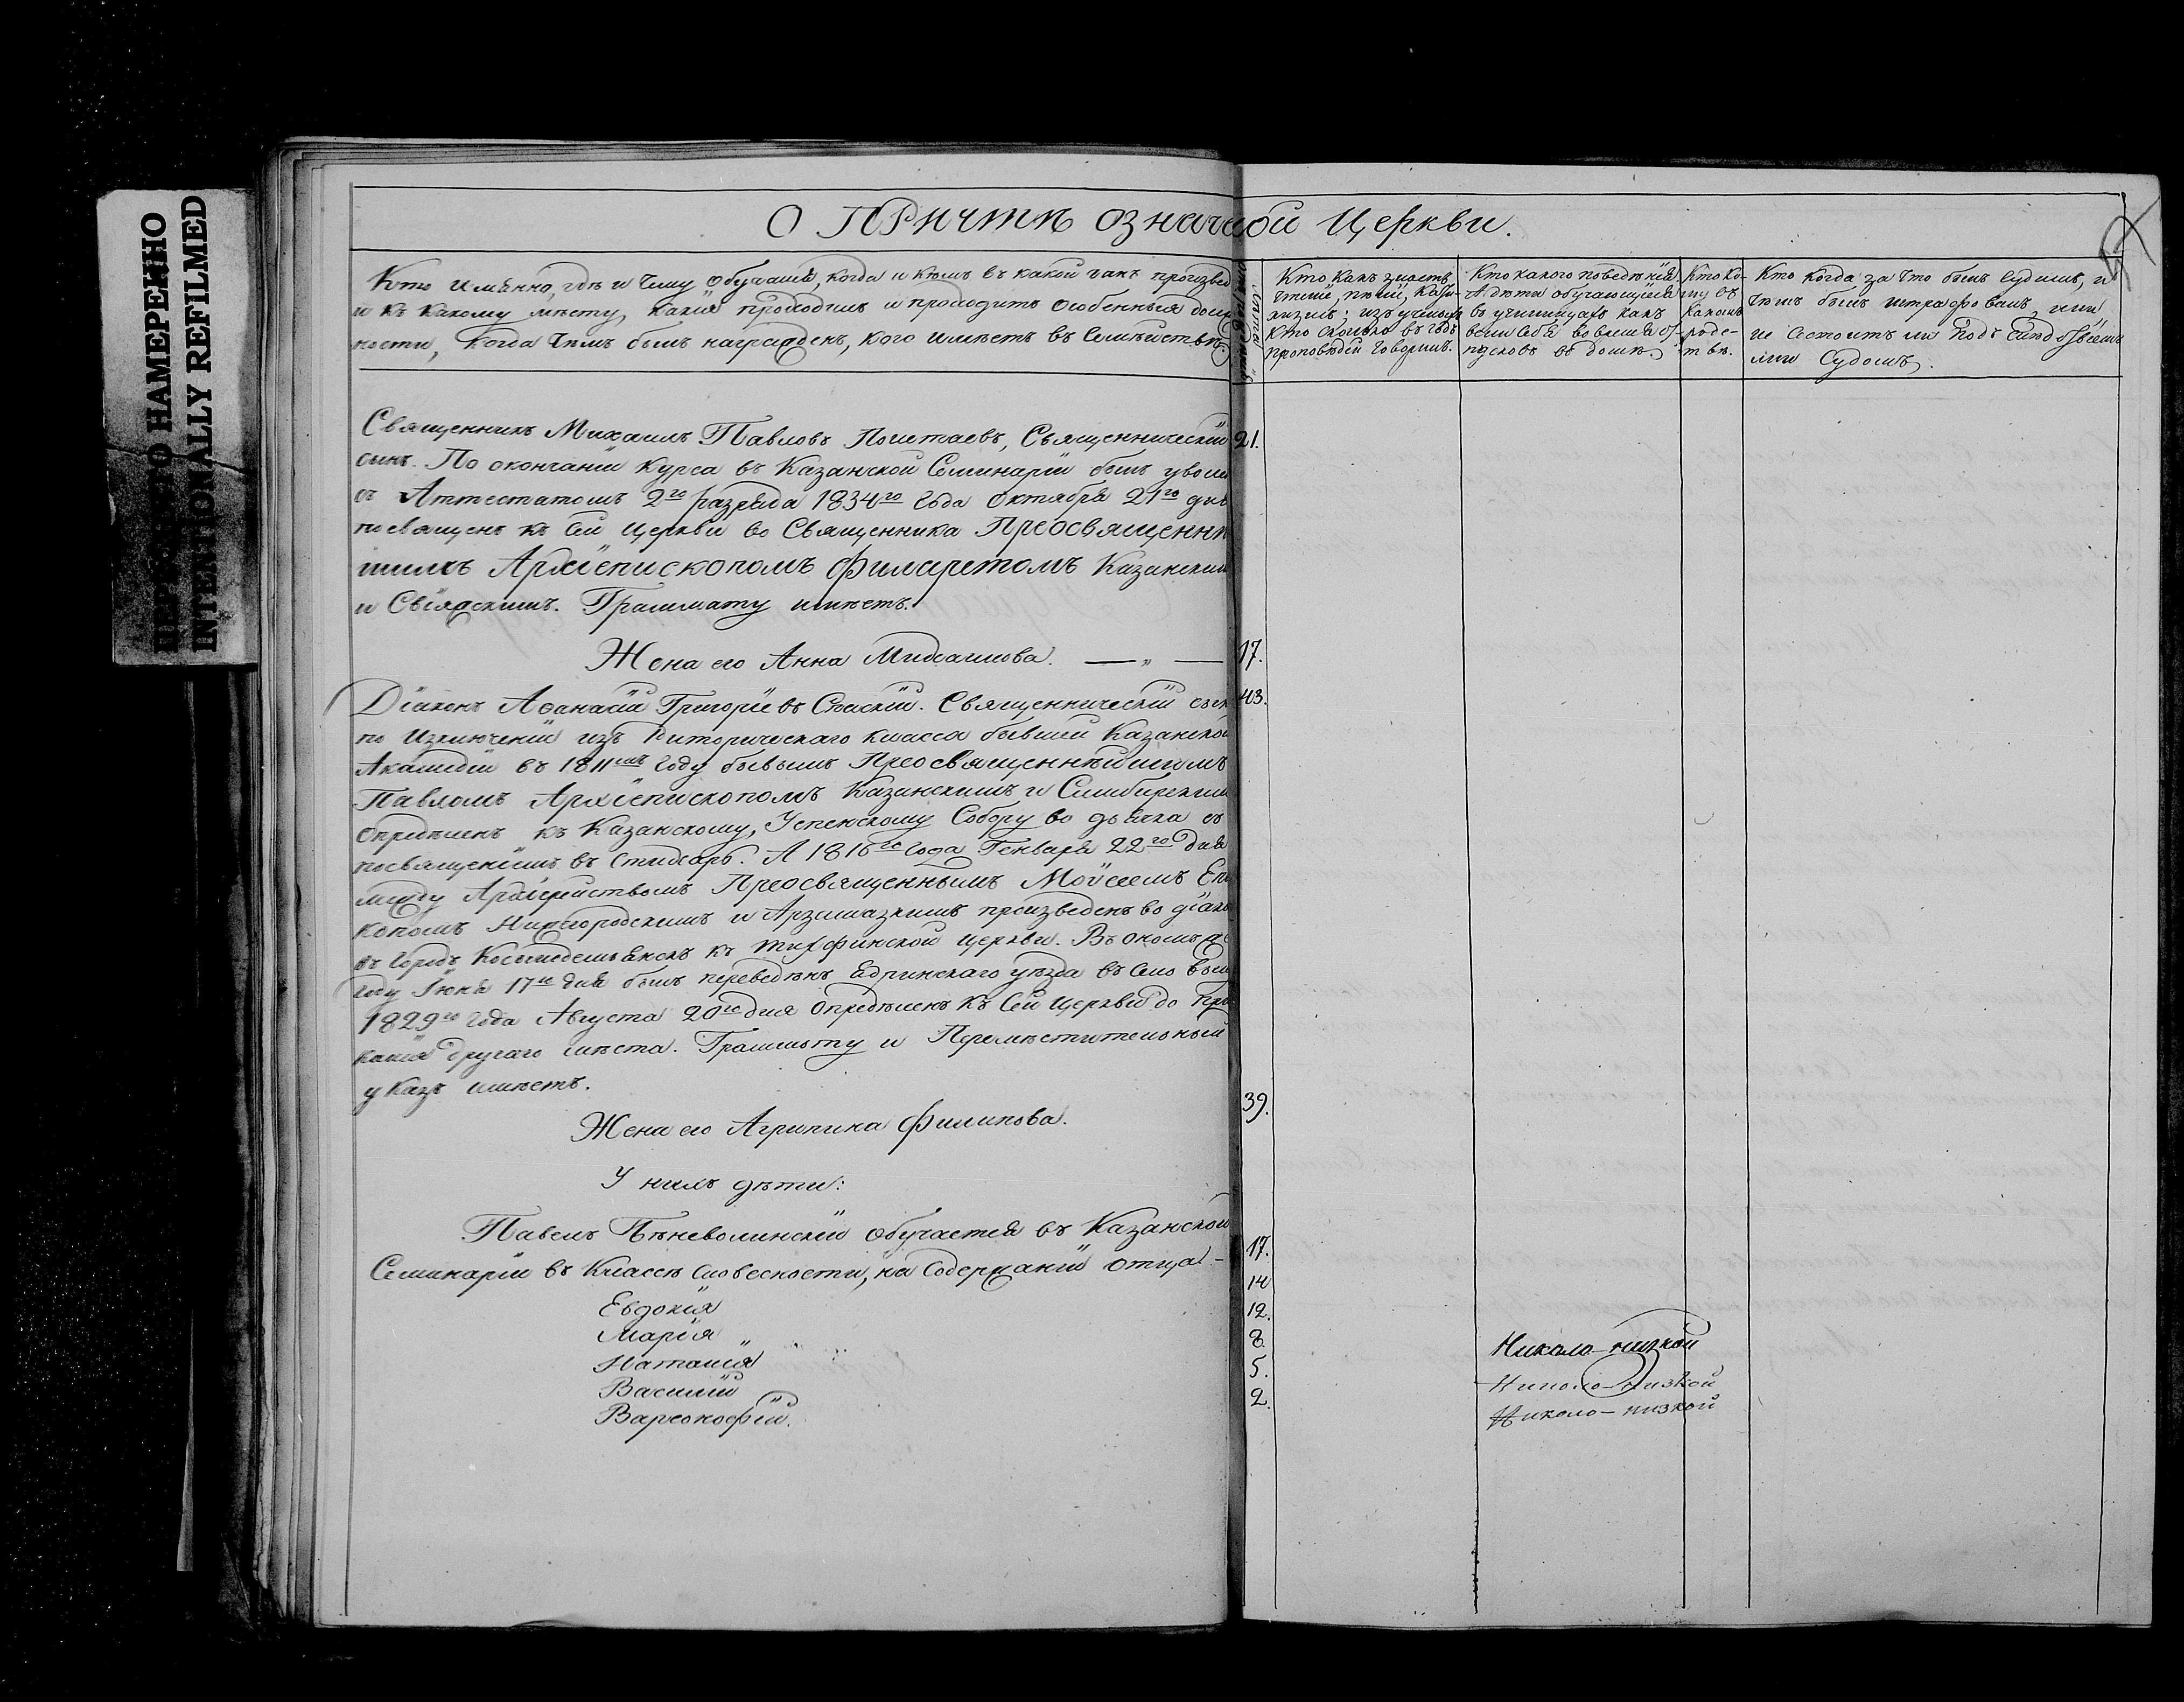 ПЕРЕСНЯТО НАМЕРЕННО
INTENTIONALLY REFILMED
О Причтѣ означеной Церкви.
Кто именно, гдѣ и чему обучался, когда и кѣмъ въ какой чинъ произвед
и къ какому мѣсту, какія проходилъ и проходитъ особенныя долж
ности, когда чѣмъ былъ награжденъ, кого имѣетъ въ семѣйствѣ.
Кто какъ знаетъ
чтеніе, пѣніе, Кати-
хизисъ; изъ ученыхъ
кто сколько въ годъ
проповѣдей говорилъ.
Кто какого поведѣнія
А дѣти обучающіеся
въ училищахъ какъ
вели себя во время от-
пусковъ въ домѣ.
Кто ко-
му въ
какомъ
родс-
твѣ.
Кто когда за что былъ судимъ, и
чѣмъ былъ штрафованъ, или
не состоитъ ли подъ слѣдствіемъ
или Судомъ.
Священникъ Михаилъ Павловъ Священническій 21.
сынъ. По окончаніи Курса въ Казанской Семинаріи былъ уволен
съ Аттестатомъ 2го разряда 1834го года Октября 21го дня
посвященъ къ сей Церкви во Священника Преосвященнѣ
шимъ Архіепископомъ Филаретомъ Казанским
и Свіяжскимъ. Граммату имѣетъ.
Жена его Анна Михаилова. — „ — 17.
Діаконъ Аѳанасій Григорьевъ Спаскій. Священническій сын 43.
по изключеніи изъ Риторическаго класса бывшей Казанской
Академіи въ 1811мъ году бывшимъ Преосвященнѣйшимъ
Павломъ Архіепископомъ Казанскимъ и Симбирским
опредѣленъ къ Казанскому, Успенскому Собору во дьячка съ
посвященіемъ въ Стихарь. А 1816го года Генваря 22го дня
между Архіерействомъ Преосвященнымъ Моѵсеемъ Епи
копомъ Нижегородскимъ и Арзамазкимъ произведенъ во діако
въ городъ Козмодемьянскъ къ Тихфинской церкви. Въ ономъ же
году Іюня 17го дня былъ переведѣнъ Ядринскаго уѣзда въ село
1829го года Августа 20го дня опредѣленъ къ Сей Церкви до прі
канія другаго мѣста. Граммату и Перемѣстительный
указъ имѣетъ.
Жена его Агрипина Филипова. 39.
У нихъ дѣти:
Павелъ обучается въ Казанской
Семинаріи въ Классѣ словесности, на содержаніи отца – 17.
Евдокія 14
Марія 12.
Наталія 8. Николо-низкой
Василій 5. Николо-низкой
Варсонофій. 2. Николо-низкой